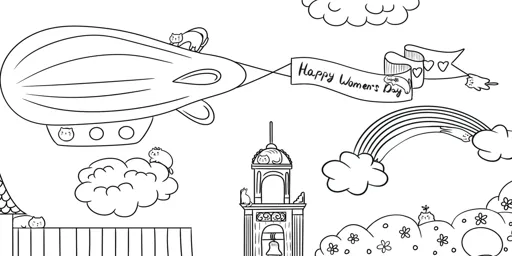 Happy Women's Day